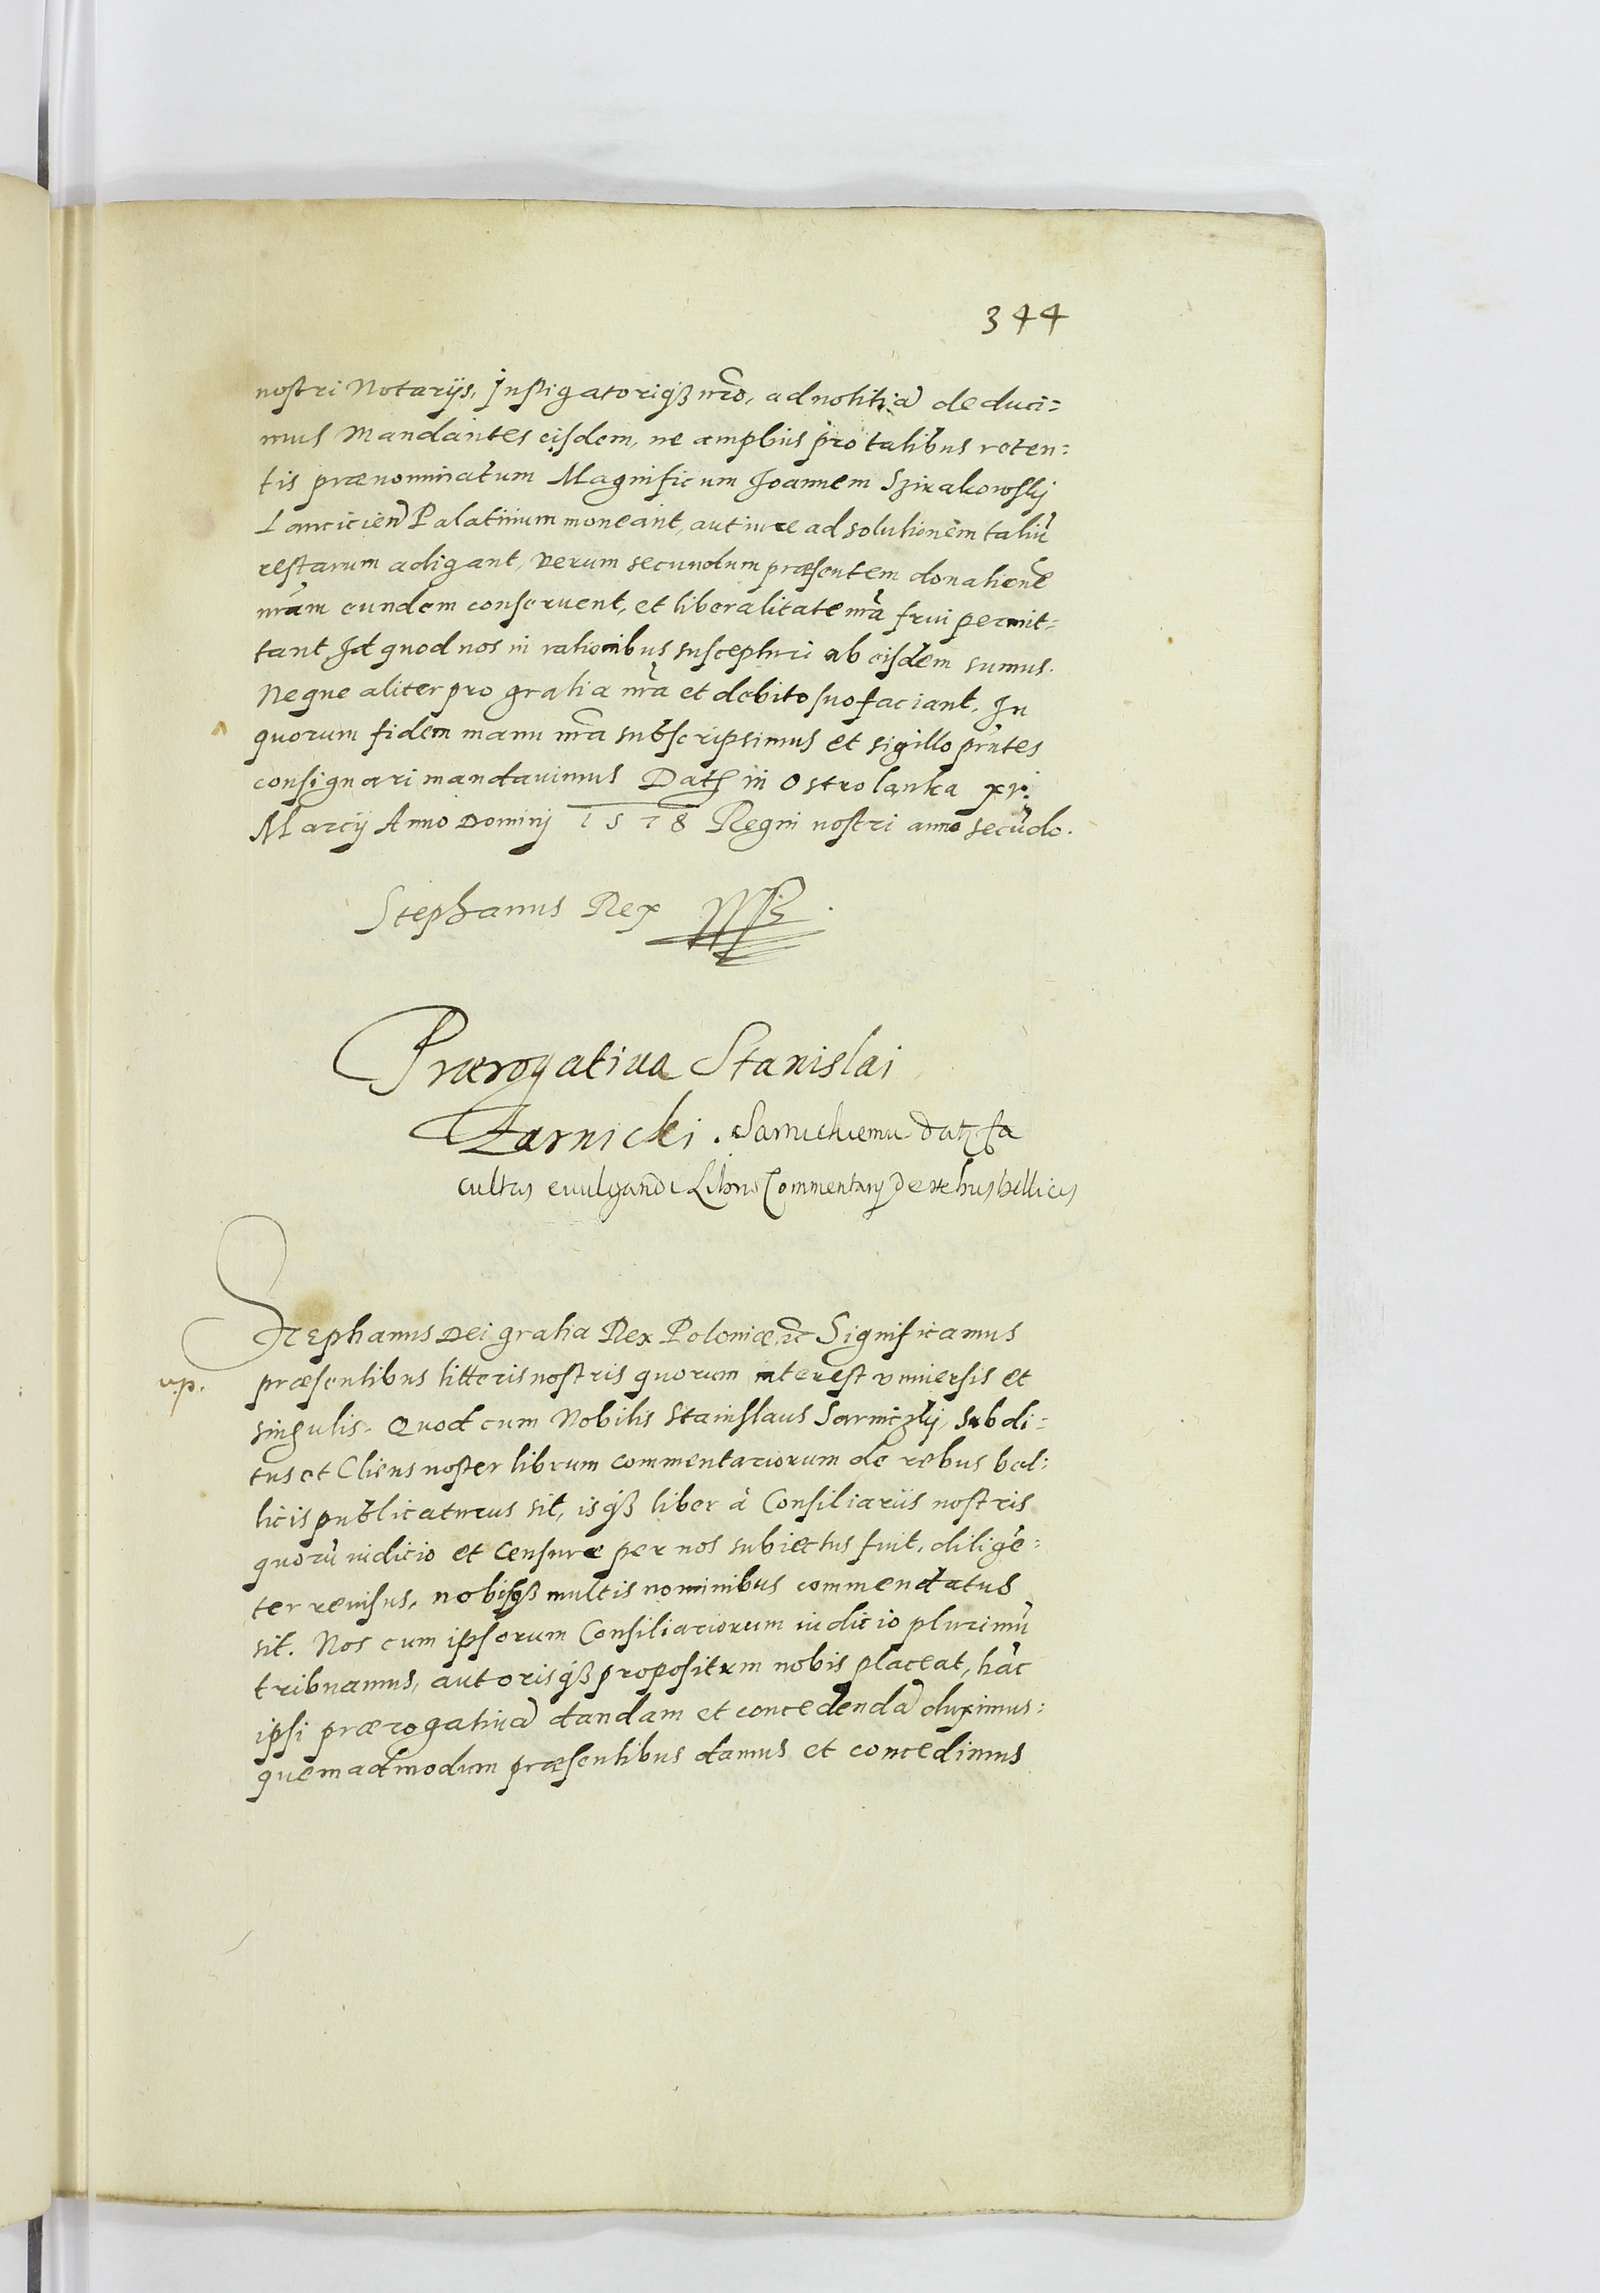 344
nostri Notarijs, Instigatoriqß nrō, ad notitiā deduci=
mus Mandantes eisdem, ne amplius pro talibus reten=
tis prænominatum Magnificum Joannem Szirakowskj
Lancicień Palatinum moneant, aut iure ad solutionem taliū
restarum adigant, verum secundum præsentem donationē
nrām eundem conseruent, et liberalitate nrā frui permit=
tant, Id quod nos in rationibus suscepturi ab eisdem sumus.
Neque aliter pro gratia nrā et debito suo faciant. In
quorum fidem manu nrā subscripsimus et sigillo prñtes
consignari mandauimus Dat in Ostrolanka xv.
Marcij Anno Dominj 1578 Regni nostri anno secūdo.
Stephanus Rex
Prærogatiua Stanislai
Zarnicki. Sarnickiemu dat fa
cultas euulgandi Libros Commentarij De rebus bellicis
Stephanus Dei gratia Rex Poloniæ etc Significamus
v.p.
præsentibus litteris nostris quorum interest vniuersis et
singulis. Quod cum Nobilis Stanislaus Sarniczkj, Subdi=
tus et Cliens noster librum commentariorum de rebus bel=
licis publicaturus sit, isqß liber à Consiliariis nostris
quorū iudicio et Censure per nos subiectus fuit, diligē=
ter reuisus, nobisqß multis nominibus commendatus
sit. Nos cum ipsorum Consiliariorum iudicio plurimū
tribuamus, autorisqß propositum nobis placeat, hāc
ipsi prærogatiuā dandam et concedendā duximus:
quemadmodum præsentibus damus et concedimus